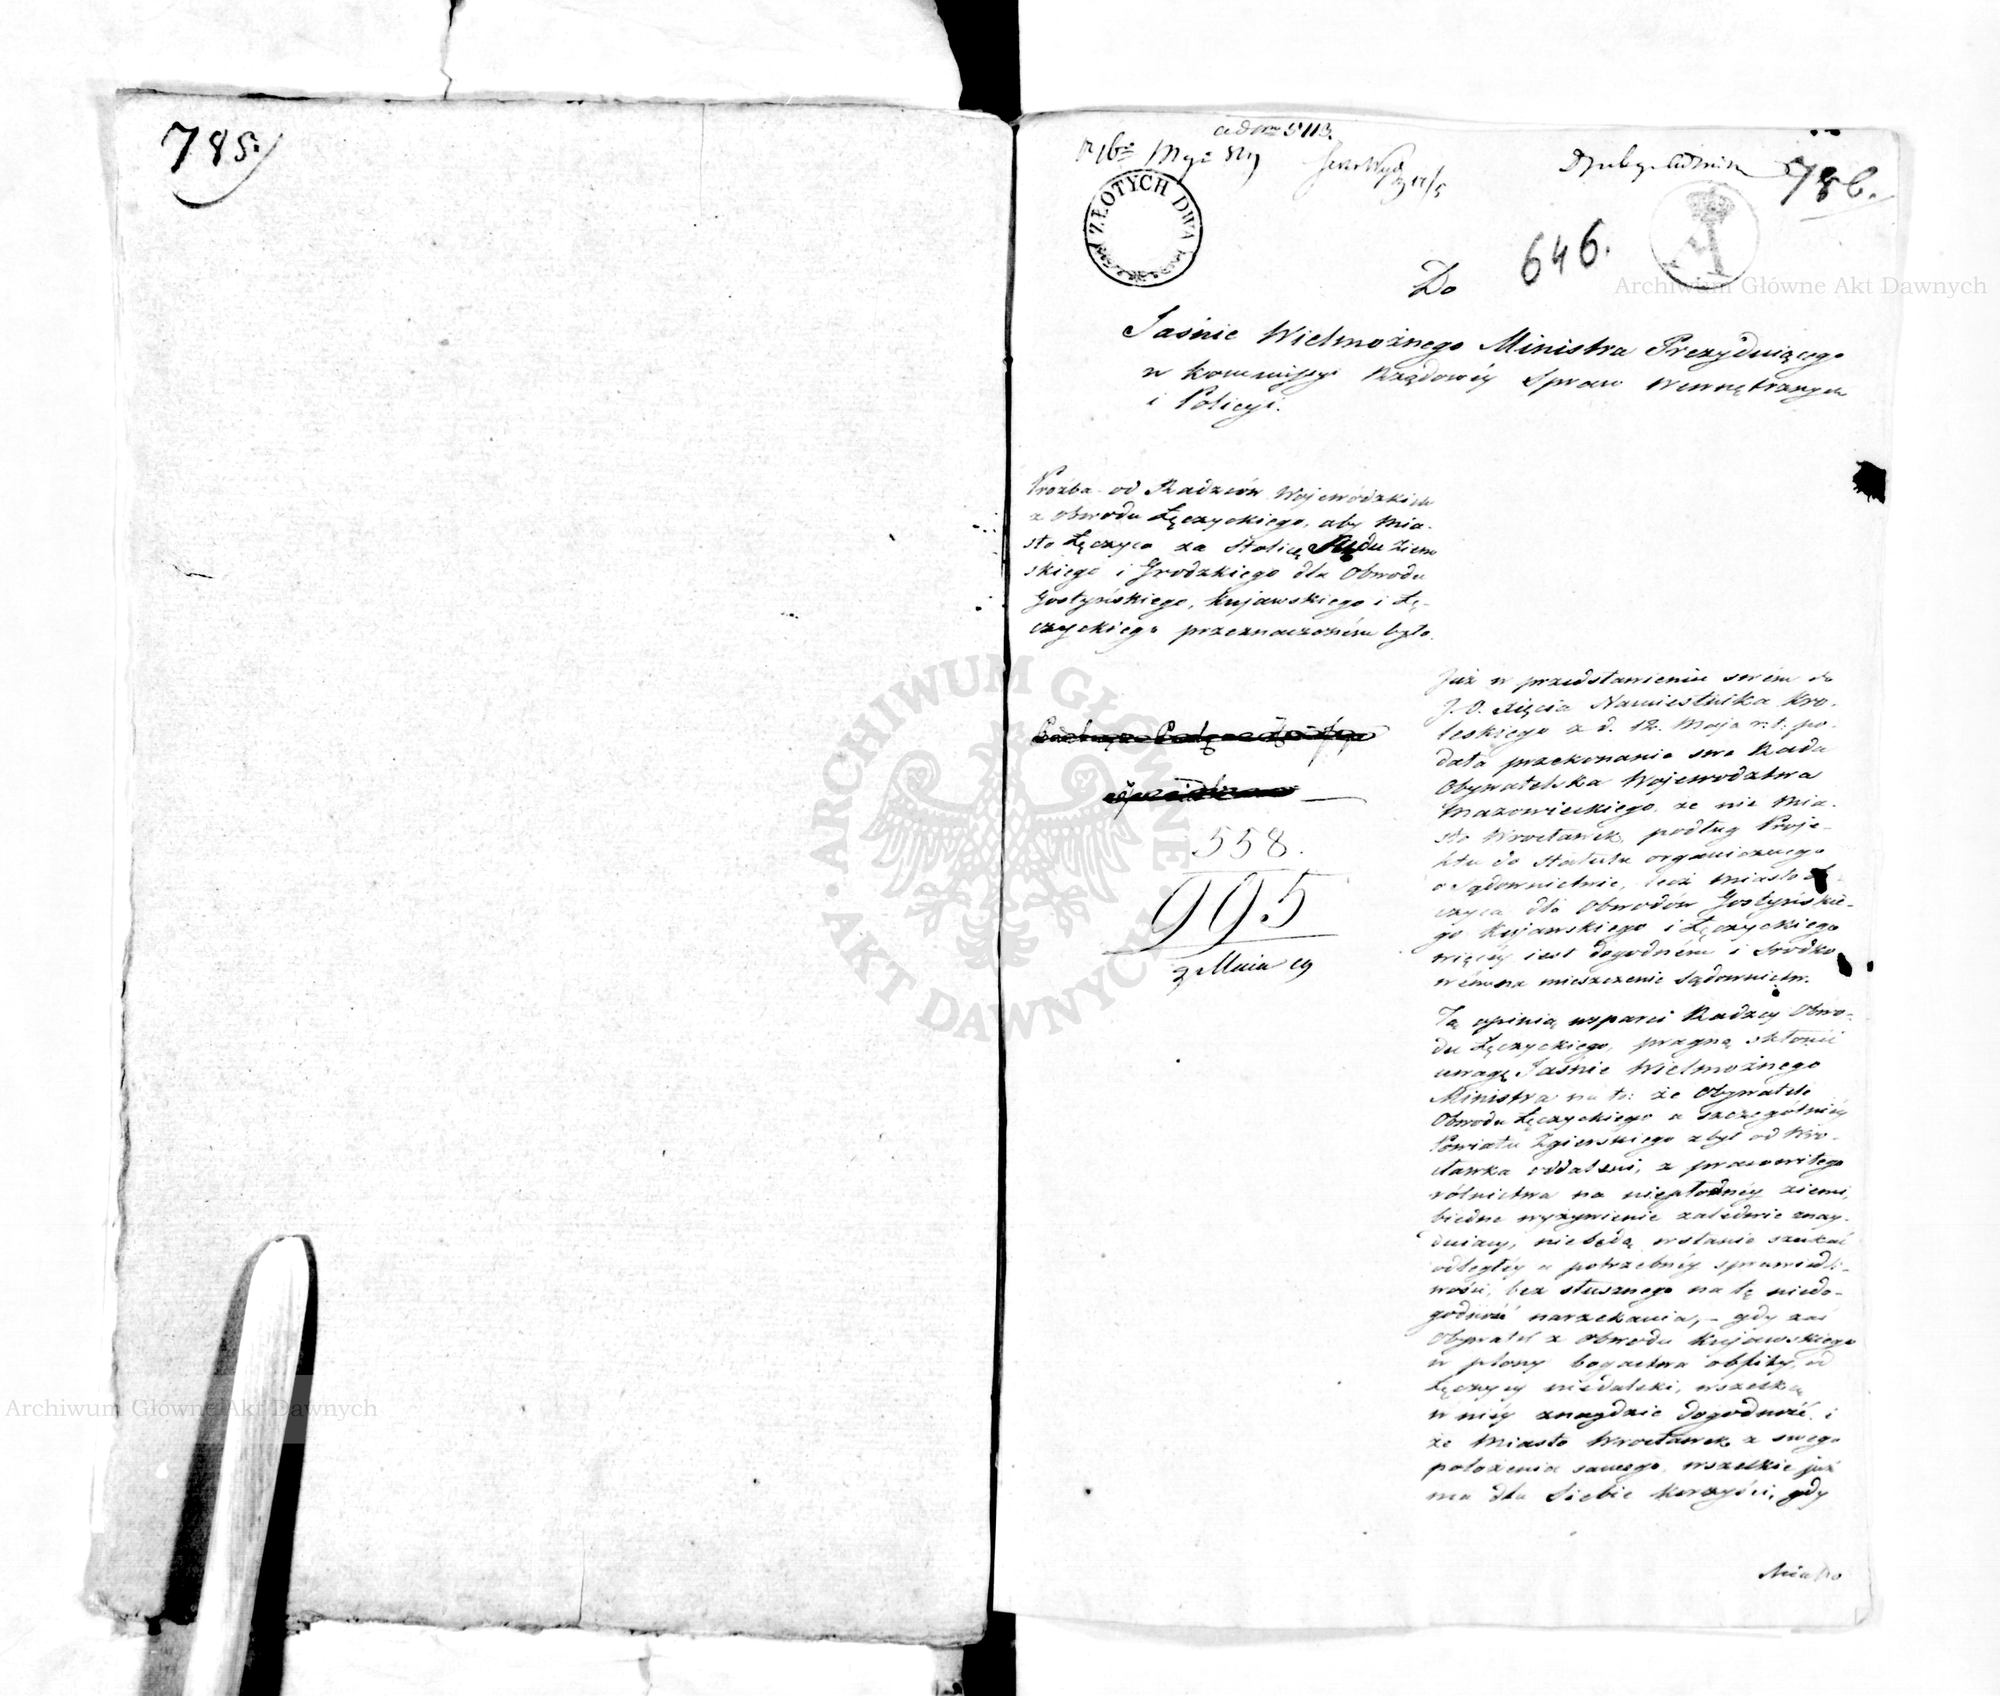 785.
ad Nrm 5113.
786.
ZŁOTYCH DWA
646.
Do
Jaśnie Wielmożnego Ministra Prezyduiącego
w Kommissyi Rządowéy Spraw Wewnętrznych
i Policyi.
Proźba od Radzców Wojewódzkich
z Obwodu Łęczyckiego, aby Mia-
sto Łęczyca za Stolicę Sądu Ziem
skiego i Grodzkiego dla Obwodu
Gostyńskiego, Kujawskiego i Łę-
czyckiego przeznaczoném było.
558.
995
Maia
Już w przedstawieniu swém do
J. O. Xięcia Namiestnika Kró-
leskiego z d. 12. Maja r. t. po-
dała przekonanie swe Rada
Obywatelska Województwa
Mazowieckiego, że nie Mia-
sto Wrocławek, podług Proje-
ktu do Statutu organicznego
o Sądownictwie, lecz Miasto Łę-
czyca dla Obwodów Gostyńskie-
go Kujawskiego i Łęczyckiego
więcéy iest dogodném i środko
wém na mieszczenie Sądownictw.
Tą opinią wsparci Radzcy Obwo-
du Łęczyckiego, pragną skłonić
uwagę Jaśnie Wielmożnego
Ministra na to: że Obywatele
Obwodu Łęczyckiego a szczególniéy
Powiatu Zgierskiego zbyt od Wro-
cławka oddaleni, z pracowitego
rólnictwa na niepłodnéy ziemi,
biedne wyżywienie zaledwie znay-
duiący, niebędą wstanie szukać
odległéy a potrzebnéy sprawiedli-
wości, bez słusznego na tę niedo-
godność narzekania, – gdy zaś
Obywatel z Obwodu Kujawskiego
w plony bogactwa obfity, od
Łęczycy niedaleki, wszelką
w niéy znaydzie dogodność i
że Miasto Wrocławek z swego
położenia samego, wszelkie już
ma dla Siebie korzyści, gdy
Miasto
Archiwum Główne Akt Dawnych
Archiwum Główne Akt Dawnych
ARCHIWUM GŁÓWNE
AKT DAWNYCH